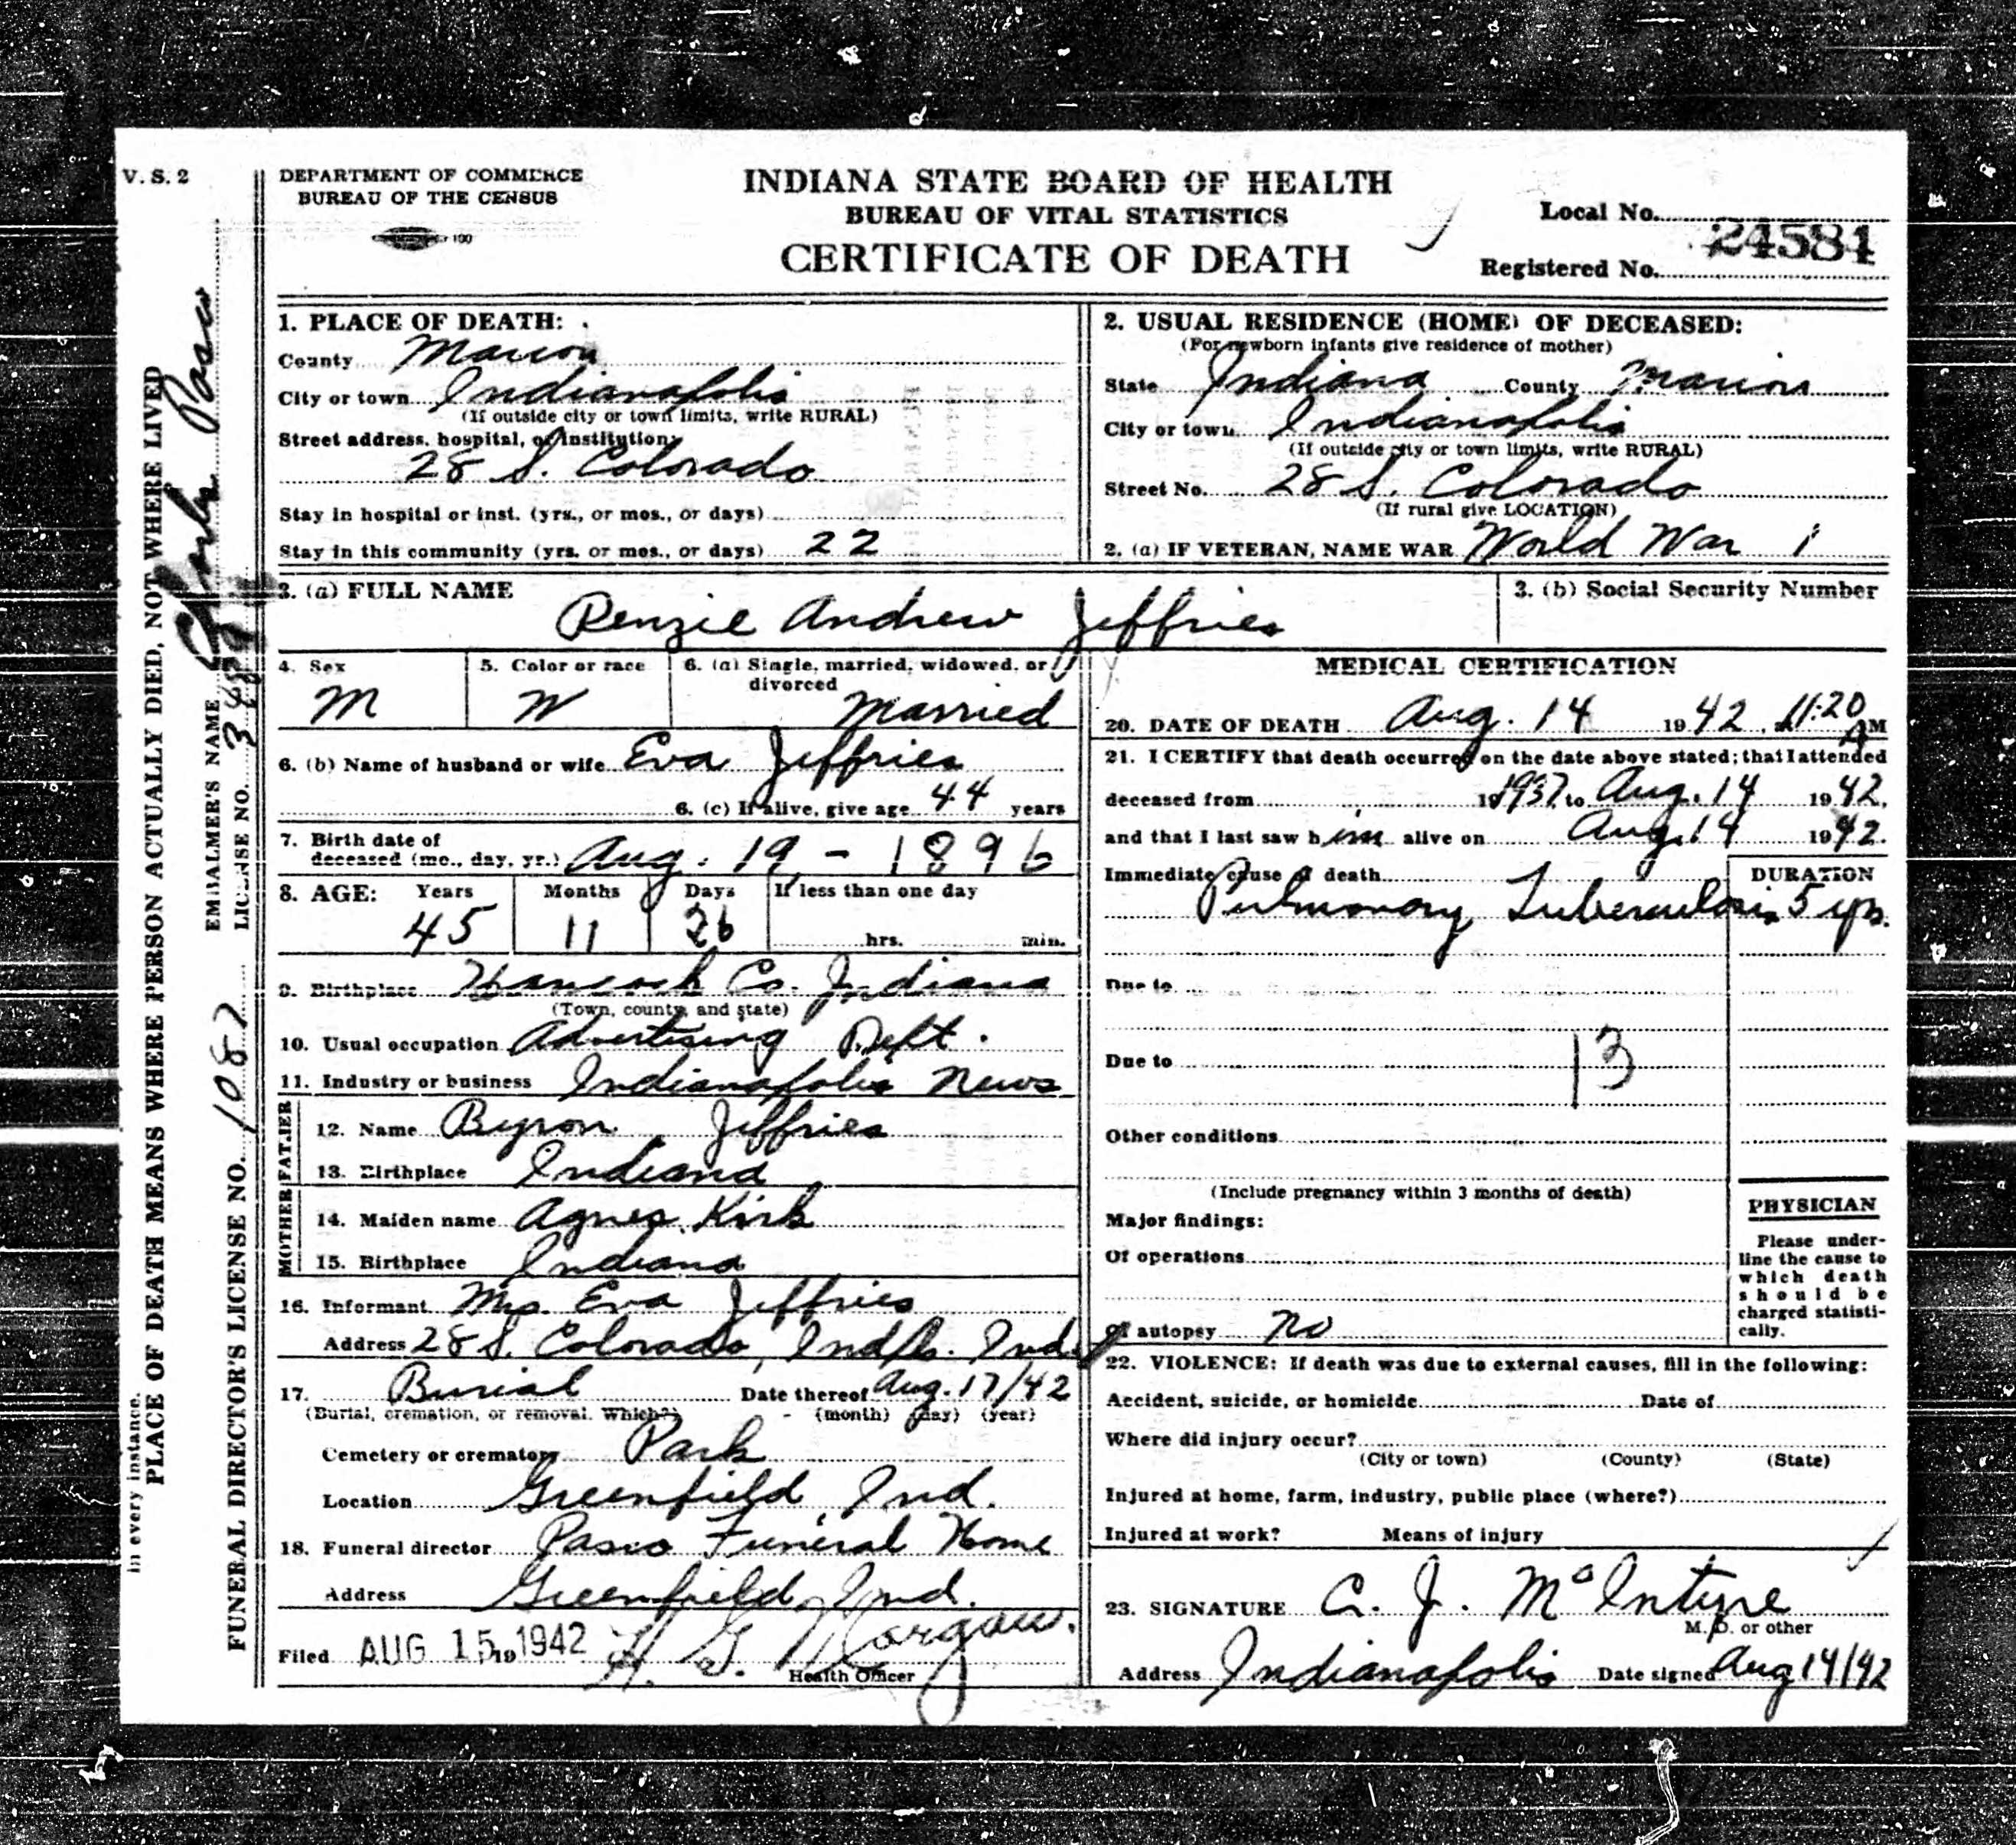 V. S. 2
DEPARTMENT OF COMMERCE
BUREAU OF THE CENSUS
INDIANA STATE BOARD OF HEALTH
BUREAU OF VITAL STATISTICS
CERTIFICATE OF DEATH
Local No.
Registered No. 24584
in every instance.
PLACE OF DEATH MEANS WHERE PERSON ACTUALLY DIED, NOT WHERE LIVED
EMBALMER'S NAME Charles Pasco
LICENSE NO.
FUNERAL DIRECTOR'S LICENSE NO. 1087
1. PLACE OF DEATH:
County Marion
City or town Indianapolis
(If outside city or town limits, write RURAL)
Street address, hospital, or institution:
28 S. Colorado
Stay in hospital or inst. (yrs., or mos., or days)
Stay in this community (yrs. or mos., or days) 22
2. USUAL RESIDENCE (HOME) OF DECEASED:
(For newborn infants give residence of mother)
State Indiana County Marion
City or town Indianapolis
(If outside city or town limits, write RURAL)
Street No. 28 S. Colorado
(If rural give LOCATION)
2. (a) IF VETERAN, NAME WAR World War 1
3. (a) FULL NAME Renzie Andrew Jeffries
3. (b) Social Security Number
4. Sex M
5. Color or race W
6. (a) Single, married, widowed, or divorced Married
6. (b) Name of husband or wife Eva Jeffries
6. (c) If alive, give age 44 years
7. Birth date of
deceased (mo., day, yr.) Aug. 19 - 1896
8. AGE: Years Months Days If less than one day
45 11 26 hrs. min.
9. Birthplace Hancock Co. Indiana
(Town, county, and state)
10. Usual occupation Advertising Dept.
11. Industry or business Indianapolis News
FATHER
12. Name Byron Jeffries
13. Birthplace Indiana
MOTHER
14. Maiden name Agnes Kirk
15. Birthplace Indiana
16. Informant Mrs. Eva Jeffries
Address 28 S. Colorado, Indpls. Ind.
17. Burial Date thereof Aug. 17/42
(Burial, cremation, or removal. Which?) (month) (day) (year)
Cemetery or crematory Park
Location Greenfield, Ind.
18. Funeral director Pasco Funeral Home
Address Greenfield, Ind.
Filed AUG 15 19 1942 H. G. Morgan.
Health Officer
MEDICAL CERTIFICATION
20. DATE OF DEATH Aug. 14 1942, 11:20 A M
21. I CERTIFY that death occurred on the date above stated; that I attended
deceased from 19 1937 to Aug. 14 1942,
and that I last saw him alive on Aug. 14 1942.
Immediate cause of death DURATION
Pulmonary Tuberculosis 5 yrs.
Due to
Due to 13
Other conditions
(Include pregnancy within 3 months of death)
Major findings:
Of operations
Of autopsy no
PHYSICIAN
Please under-
line the cause to
which death
should be
charged statisti-
cally.
22. VIOLENCE: If death was due to external causes, fill in the following:
Accident, suicide, or homicide Date of
Where did injury occur?
(City or town) (County) (State)
Injured at home, farm, industry, public place (where?)
Injured at work? Means of injury
23. SIGNATURE C. J. McIntyre
M. D. or other
Address Indianapolis Date signed Aug 14/42